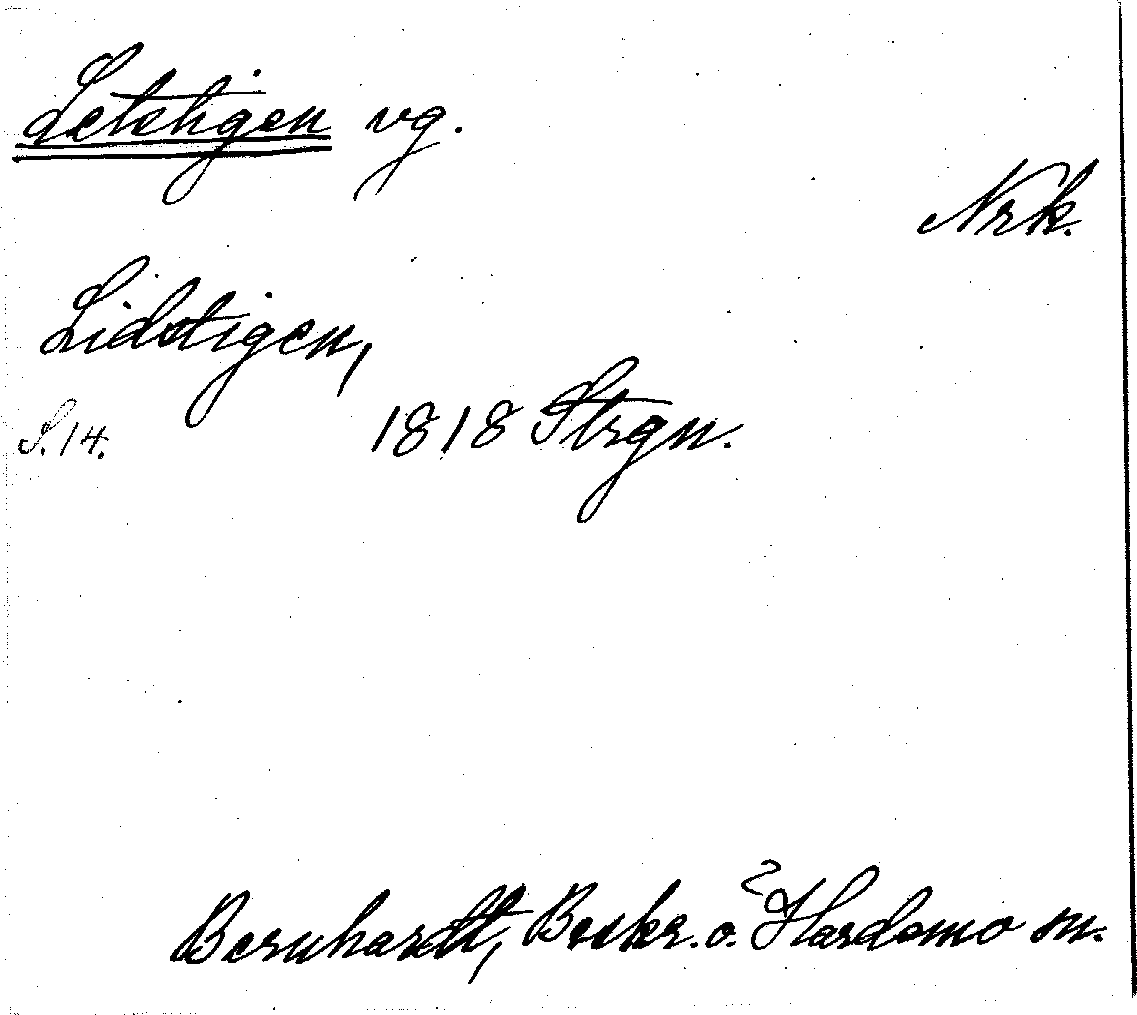 Letstigen vg.
Nrk.
Lidstigen,
S. 14. 1818 Strgn.
Bernhardt, Beskr. ö. Hardemo sn.